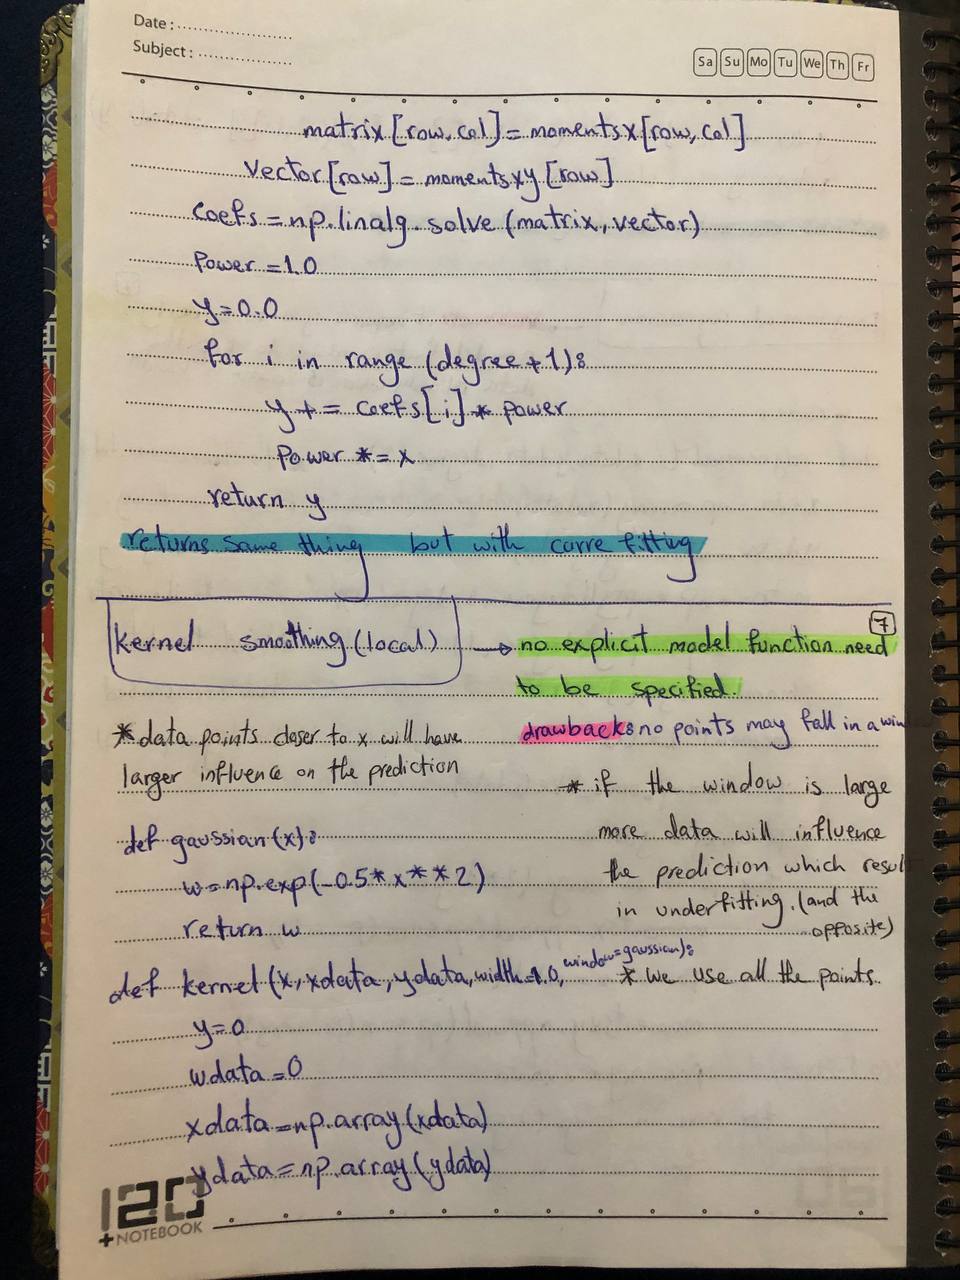 Date :
Subject :
Sa Su Mo Tu We Th Fr
matrix[row,col]=momentsx[row,col]
Vector[row]=momentsxy[row]
coefs=np.linalg.solve(matrix,vector)
Power=1.0
y=0.0
for i in range (degree+1):
y+=coefs[i]*power
Power *= x
return y
returns same thing but with curve fitting
7
kernel smoothing (local) → no explicit model function need
to be specified.
drawbacks no points may fall in a
*data points closer to x will have
larger influence on the prediction
* if the window is large
more data will influence
the prediction which
in underfitting. (and the
opposite)
def gaussian(x):
w=np.exp(-0.5*x**2)
return w
def kernel(x,xdata,ydata,width=1.0,window=gaussian):
* we use all the points.
y=0
wdata=0
xdata=np.array(xdata)
ydata=np.array(ydata)
120
+NOTEBOOK